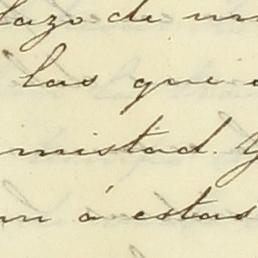 lazo de un
las que
mistad. Y
n á estas